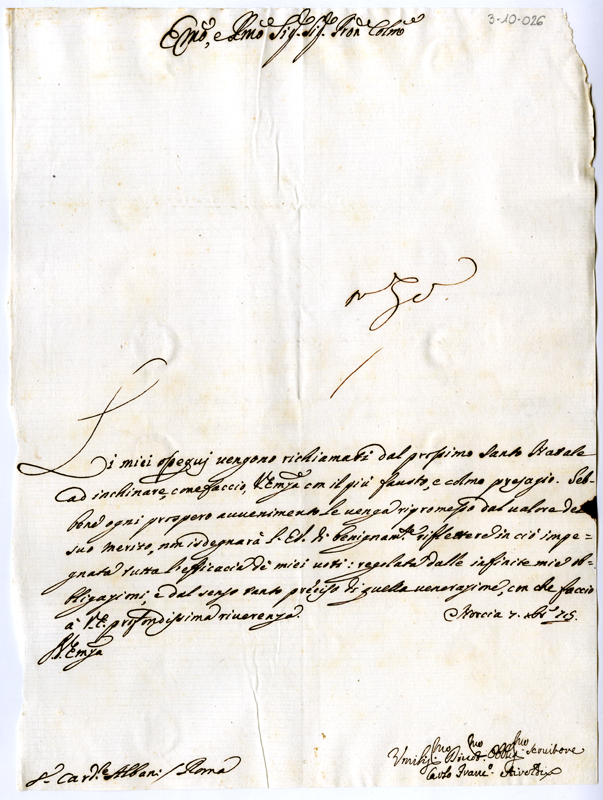 3-10-026
Emo, e Rmo Sig.r Sig.r Pron Colmo
Li miei ossequj vengono richiamati dal prossimo Santo Natale
ad inchinare, come faccio, V. Emza con il più fausto, e colmo presagio. Seb-
bene ogni prospero avvenimento le venga ripromesso dal valore del
suo merito, non isdegnarà l'E.V. di benignam.te riflettere in ciò impe-
gnata tutta l'efficacia de' miei voti: regolata dalle infinite mie ob-
bligazioni, e dal senso tanto preciso di quella venerazione, con che faccio
à V.E. profondissima riverenza. Norcia 7. Xbre 715.
Di V. Emza
S.r Card.le Albani / Roma
Umiliss.mo Divot.mo Obbl.mo Servitore
Carlo